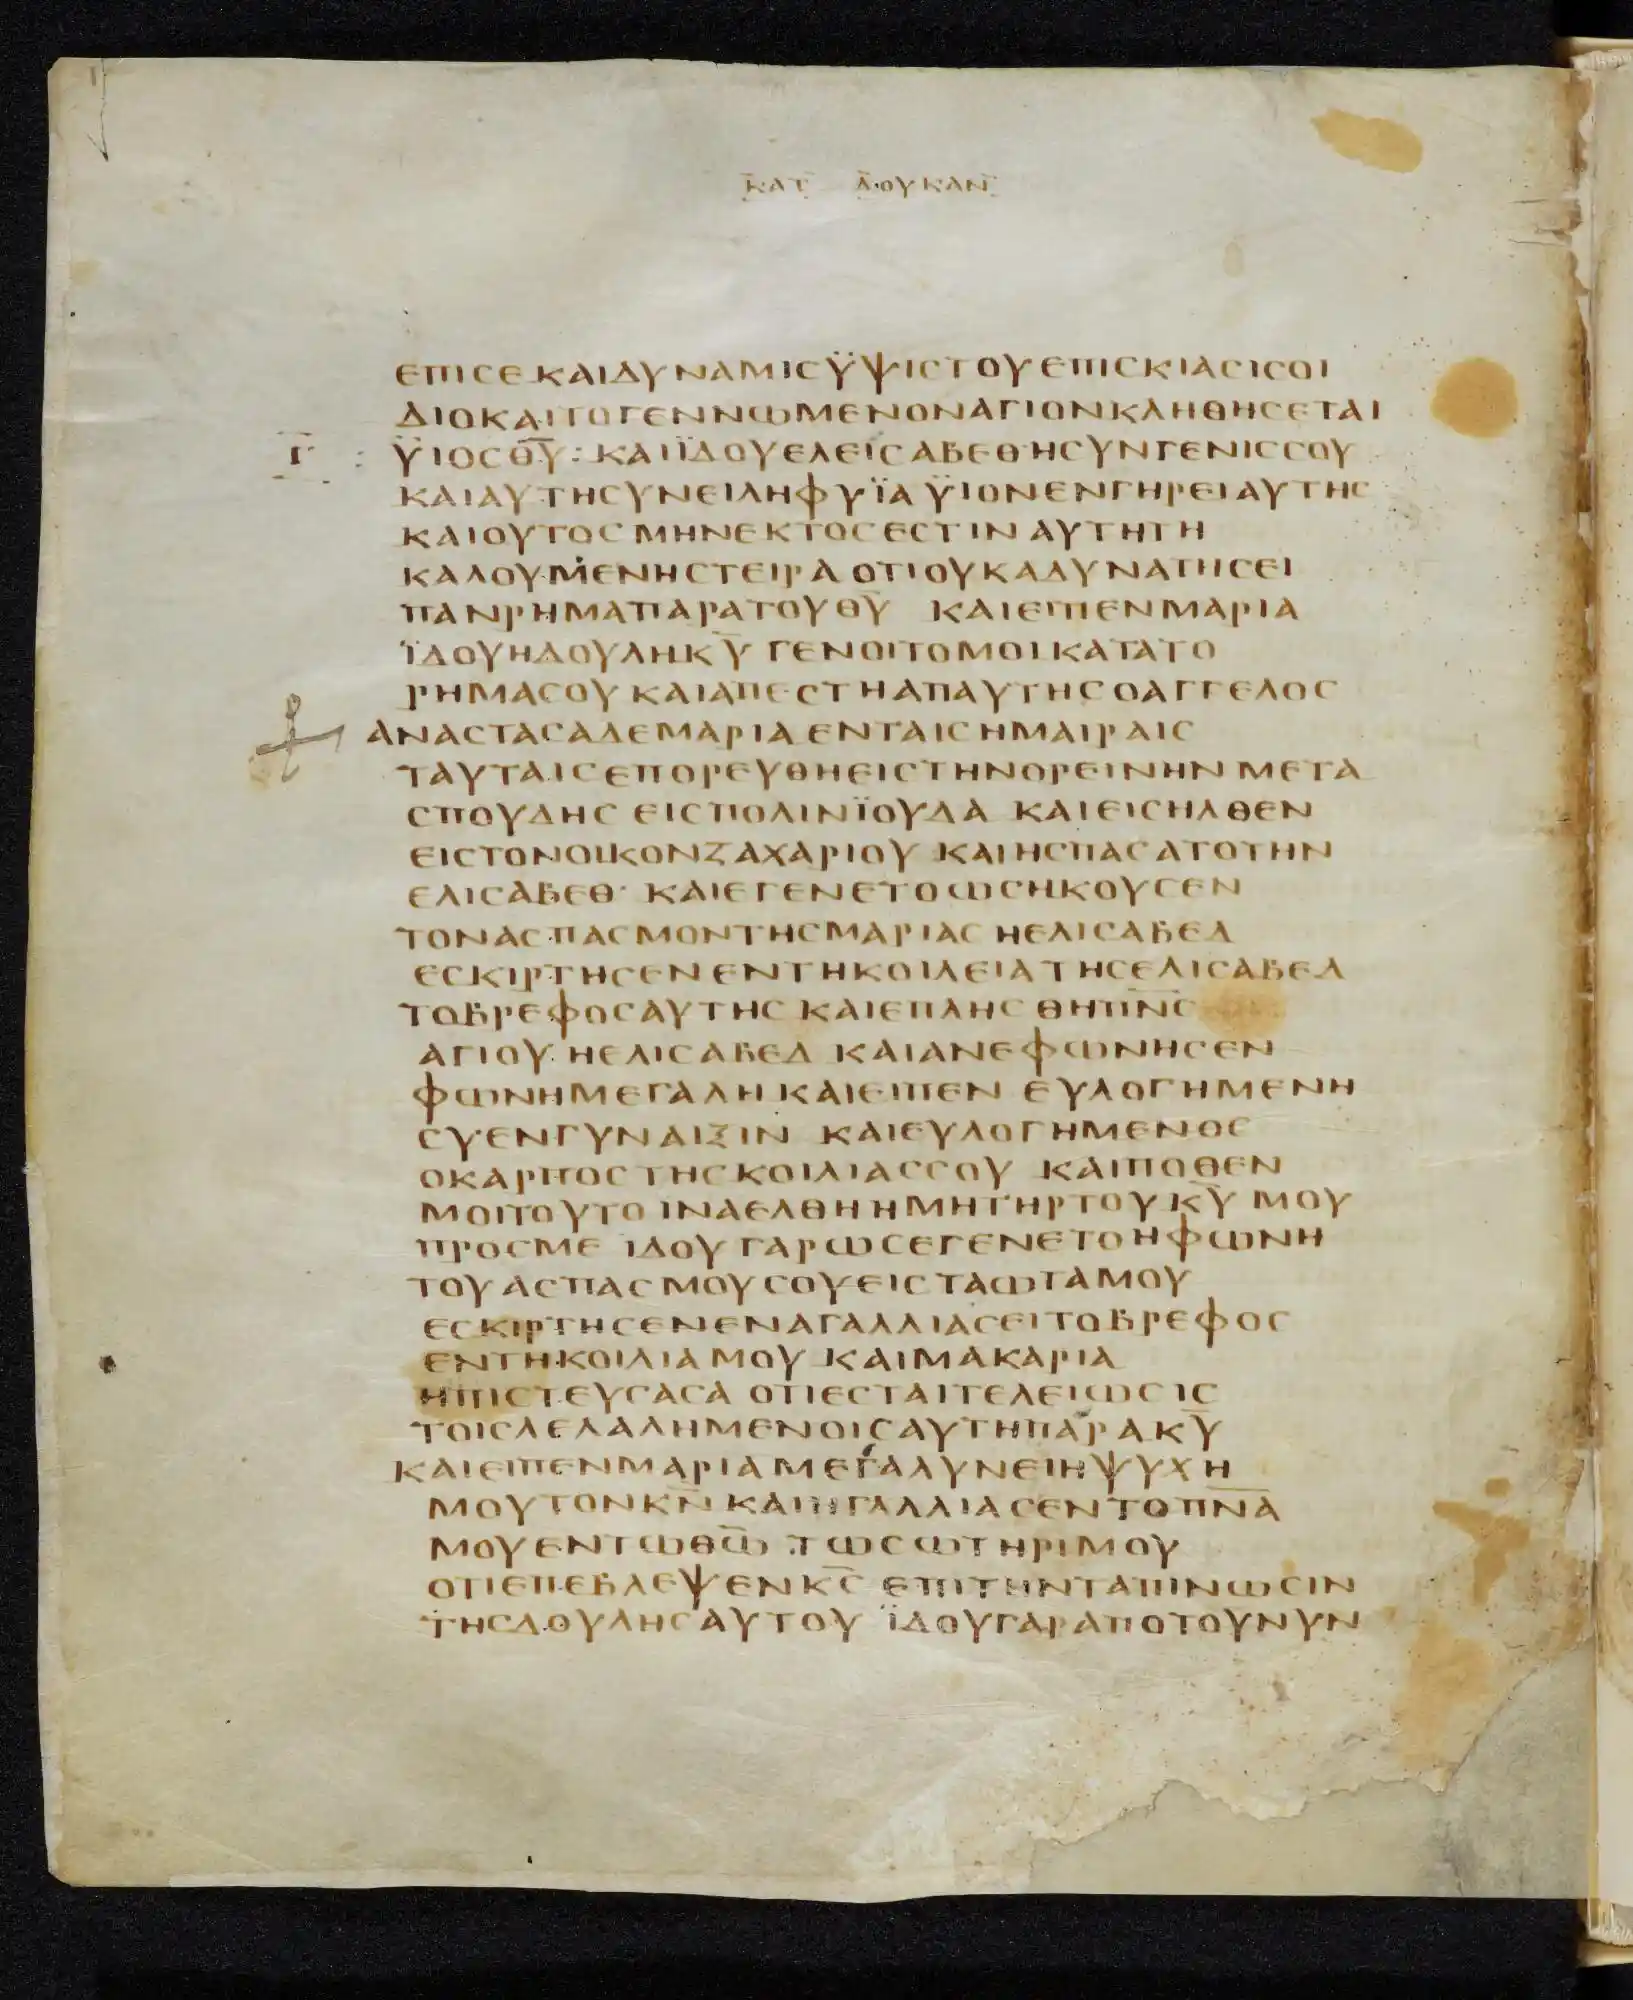 ΚΑΤ ΛΟΥΚΑΝ
ΕΠΙϹΕ ΚΑΙΔΥΝΑΜΙϹΫΨΙϹΤΟΥΕΠΙϹΚΙΑϹΙϹΟΙ
ΔΙΟΚΑΙΤΟΓΕΝΝΩΜΕΝΟΝΑΓΙΟΝΚΛΗΘΗϹΕΤΑΙ
Γ : ΫΙΟϹΘ̅Υ̅: ΚΑΙΪΔΟΥΕΛΕΙϹΑΒΕΘΗϹΥΝΓΕΝΙϹϹΟΥ
ΚΑΙΑΥΤΗϹΥΝΕΙΛΗΦΥΪΑ ΫΙΟΝΕΝΓΗΡΕΙΑΥΤΗϹ
ΚΑΙΟΥΤΟϹΜΗΝΕΚΤΟϹΕϹΤΙΝ ΑΥΤΗΤΗ
ΚΑΛΟΥΜΕΝΗϹΤΕΙΡΑ ΟΤΙΟΥΚΑΔΥΝΑΤΗϹΕΙ
ΠΑΝΡΗΜΑΠΑΡΑΤΟΥΘ̅Υ̅ ΚΑΙΕΙΠΕΝΜΑΡΙΑ
ΪΔΟΥΗΔΟΥΛΗΚ̅Υ̅ ΓΕΝΟΙΤΟΜΟΙΚΑΤΑΤΟ
ΡΗΜΑϹΟΥ ΚΑΙΑΠΕϹΤΗΑΠΑΥΤΗϹ ΟΑΓΓΕΛΟϹ
ΑΝΑϹΤΑϹΑΔΕΜΑΡΙΑ ΕΝΤΑΙϹ ΗΜΑΙΡΑΙϹ
ΤΑΥΤΑΙϹΕΠΟΡΕΥΘΗΕΙϹΤΗΝΟΡΕΙΝΗΝ ΜΕΤΑ
ϹΠΟΥΔΗϹ ΕΙϹΠΟΛΙΝΪΟΥΔΑ ΚΑΙΕΙϹΗΛΘΕΝ
ΕΙϹΤΟΝΟΙΚΟΝΖΑΧΑΡΙΟΥ ΚΑΙΗϹΠΑϹΑΤΟΤΗΝ
ΕΛΙϹΑΒΕΘ· ΚΑΙΕΓΕΝΕΤΟΩϹΗΚΟΥϹΕΝ
ΤΟΝΑϹΠΑϹΜΟΝΤΗϹΜΑΡΙΑϹ ΗΕΛΙϹΑΒΕΔ
ΕϹΚΙΡΤΗϹΕΝ ΕΝΤΗΚΟΙΛΕΙΑ ΤΗϹΕΛΙϹΑΒΕΔ
ΤΟΒΡΕΦΟϹΑΥΤΗϹ ΚΑΙΕΠΛΗϹΘΗΠ̅Ν̅Ϲ̅
ΑΓΙΟΥ ΗΕΛΙϹΑΒΕΔ ΚΑΙΑΝΕΦΩΝΗϹΕΝ
ΦΩΝΗΜΕΓΑΛΗ ΚΑΙΕΙΠΕΝ ΕΥΛΟΓΗΜΕΝΗ
ϹΥΕΝΓΥΝΑΙΞΙΝ ΚΑΙΕΥΛΟΓΗΜΕΝΟϹ
ΟΚΑΡΠΟϹΤΗϹΚΟΙΛΙΑϹϹΟΥ ΚΑΙΠΟΘΕΝ
ΜΟΙΤΟΥΤΟ ΙΝΑΕΛΘΗΗΜΗΤΗΡΤΟΥΚ̅Υ̅ ΜΟΥ
ΠΡΟϹΜΕ ΙΔΟΥΓΑΡΩϹΕΓΕΝΕΤΟΗΦΩΝΗ
ΤΟΥΑϹΠΑϹΜΟΥϹΟΥΕΙϹΤΑΩΤΑΜΟΥ
ΕϹΚΙΡΤΗϹΕΝΕΝΑΓΑΛΛΙΑϹΕΙΤΟΒΡΕΦΟϹ
ΕΝΤΗΚΟΙΛΙΑΜΟΥ ΚΑΙΜΑΚΑΡΙΑ
ΗΠΙϹΤΕΥϹΑϹΑ ΟΤΙΕϹΤΑΙΤΕΛΕΙΩϹΙϹ
ΤΟΙϹΛΕΛΑΛΗΜΕΝΟΙϹΑΥΤΗΠΑΡΑΚ̅Υ̅
ΚΑΙΕΙΠΕΝΜΑΡΙΑΜΕΓΑΛΥΝΕΙΗΨΥΧΗ
ΜΟΥΤΟΝΚ̅Ν̅ ΚΑΙΗΓΑΛΛΙΑϹΕΝΤΟΠ̅Ν̅Α̅
ΜΟΥΕΝΤΩΘ̅Ω̅ ΤΩϹΩΤΗΡΙΜΟΥ
ΟΤΙΕΠΕΒΛΕΨΕΝΚ̅Ϲ̅ ΕΠΙΤΗΝΤΑΠΙΝΩϹΙΝ
ΤΗϹΔΟΥΛΗϹΑΥΤΟΥ ΪΔΟΥΓΑΡΑΠΟΤΟΥΝΥΝ